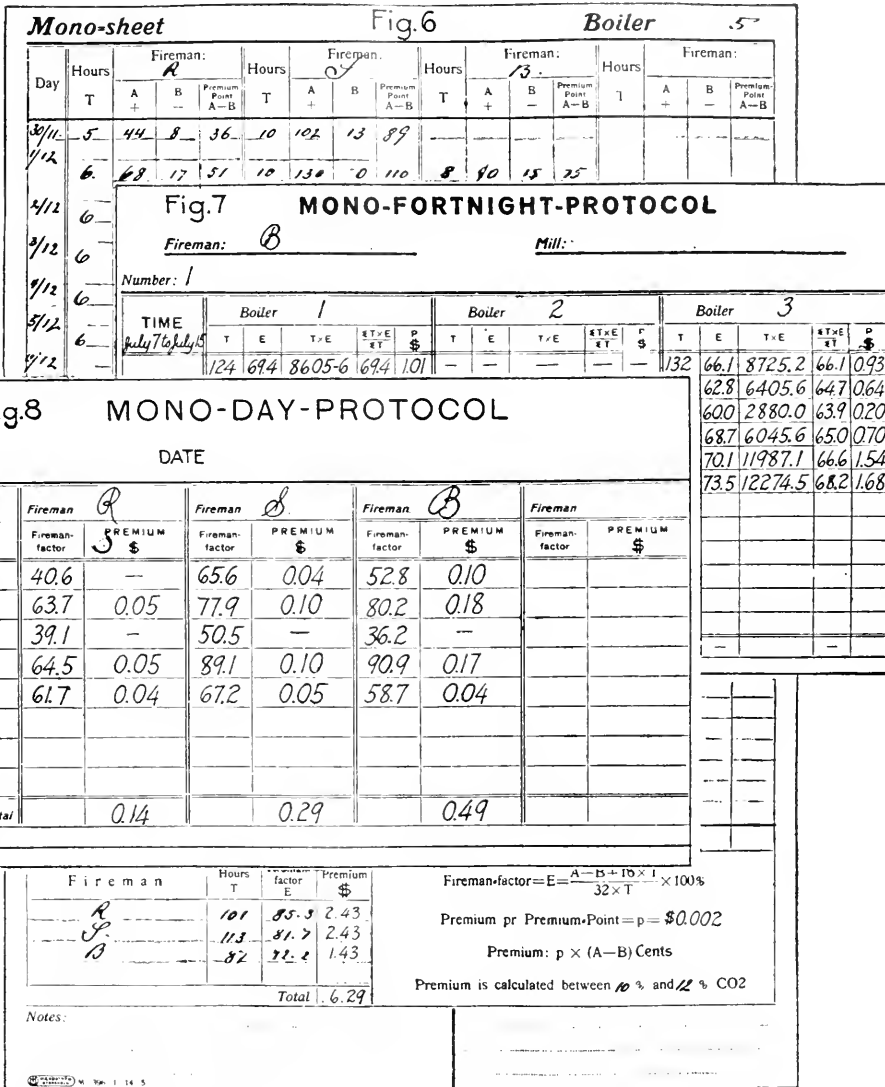 Mono-sheet Fig.6 Boiler .5
Day Hours T Fireman: R A + B − Premium Point A−B Hours T Fireman: S A + B Premium Point A−B Hours T Fireman: B. A + B − Premium Point A−B Hours Fireman: A + B − Premium-Point A−B
30/11 5 44 8 36 10 102 13 89
1/12
6. 68 17 51 10 130 0 110 8 90 15 75
2/12 6
3/12 6
4/12 6
5/12 6
Fig.7 MONO-FORTNIGHT-PROTOCOL
Fireman: B Mill:
Number: 1
TIME Boiler 1 Boiler 2 Boiler 3
July 7 to July 15 T E T×E ΣT×E/ΣT P $ T E T×E ΣT×E/ΣT P $ T E T×E ΣT×E/ΣT P $
124 69.4 8605-6 69.4 1.01 — — — — — 132 66.1 8725.2 66.1 0.93
62.8 6405.6 64.7 0.64
60.0 2880.0 63.9 0.20
68.7 6045.6 65.0 0.70
70.1 11987.1 66.6 1.54
73.5 12274.5 68.2 1.68
g.8 MONO-DAY-PROTOCOL
DATE
Fireman R Fireman S. Fireman B Fireman
Fireman-factor PREMIUM $ Fireman-factor PREMIUM $ Fireman-factor PREMIUM $ Fireman-factor PREMIUM $
40.6 — 65.6 0.04 52.8 0.10
63.7 0.05 77.9 0.10 80.2 0.18
39.1 – 50.5 — 36.2 —
64.5 0.05 89.1 0.10 90.9 0.17
61.7 0.04 67.2 0.05 58.7 0.04
tal 0.14 0.29 0.49
Fireman Hours T factor E Premium $
R 101 85.3 2.43
S. 113 81.7 2.43
B 82 1.43
Total 6.29
Fireman-factor=E=A−B+16×T/32×T ×100%
Premium pr Premium-Point=p=$0.002
Premium: p × (A−B) Cents
Premium is calculated between 10 % and 12 % CO2
Notes: